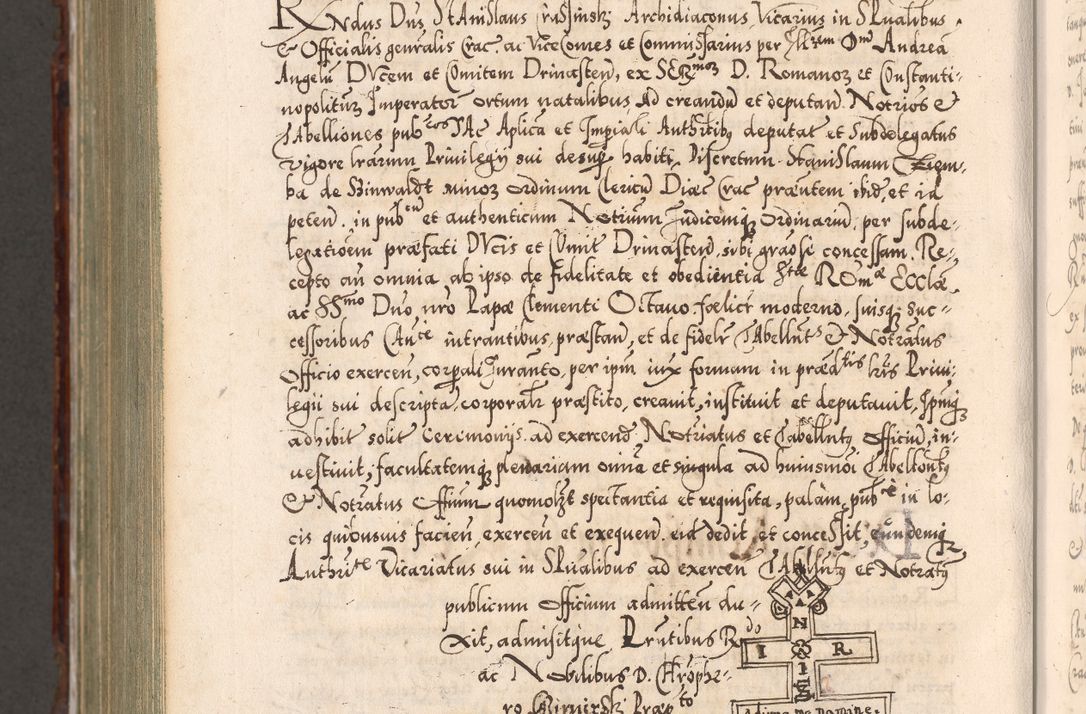 Rndus Dns StAnislaus CrasSinski Archidiaconus, Vicarius in SPualibus
& Officialis genralis Crac. ac ViceComes et Commissarius per Illrem Dnu Andreã
Angelũ DVcem et Comitem Drinasteñ, ex SErmoꝝ D. Romanoꝝ et Constanti-
nopolituꝝ Imperator ortum natalibus Ad creandũ et deputand. Notrios &
TAbelliones pubcos SAc Aplica et Impiali Authritibꝫ deputat et Subdelegatus
vigore lrarum Priuilegij sui desuper habiti, Discretum StaniSlaum Ziem-
ba de Szinwaldt minoꝝ ordinum Clericũ Diæc Crac præsntem ibid, et id
petent. in pubcu et authenticum Notrium Judicemqꝫ Ordinariũ per subde-
legatioem præfati DVcis et Comit Drinasteñ, sibi graose concessam. Re-
cepto añ omnia ab ipso de fidelitate et obedientia Stæ ROmæ Ecclæ,
ac SSmo Dno nro Papæ Clementi Octauo fœlicr moderno, suisqꝫ Suc-
cessoribus CAnce intrantibus, præstand, et de fidelr TAbellntus & Notratus
Officio exercen, corpali Juranto, per ipm iux formam in prædtris lris Priui-
legii sui descripta, corporalr præstito, creauit, instituit et deputauit, Ipmqꝫ
adhibit solit Ceremonijs ad exercend Notriatus et Tabellntꝫ officiũ, in-
uestiuit, facultatemqꝫ plenariam omnia et singula ad huiusmoi TAbelltontꝫ
& Notratus Offium quomolzt spectantia et requisita, palam, pubce in lo-
cis quibusuis facien, exercen et exequend. eid dedit et conceSsit, eundemqꝫ
Authrite Vicariatus sui in SPualibus ad exercen TAbellntꝫ et Notratꝫ
publicum officium admitten du-
xit, admisitque, Prntibus Rdo
ac Nobilibus D. Chrophe-
ro Præpto
N
I R
I
S